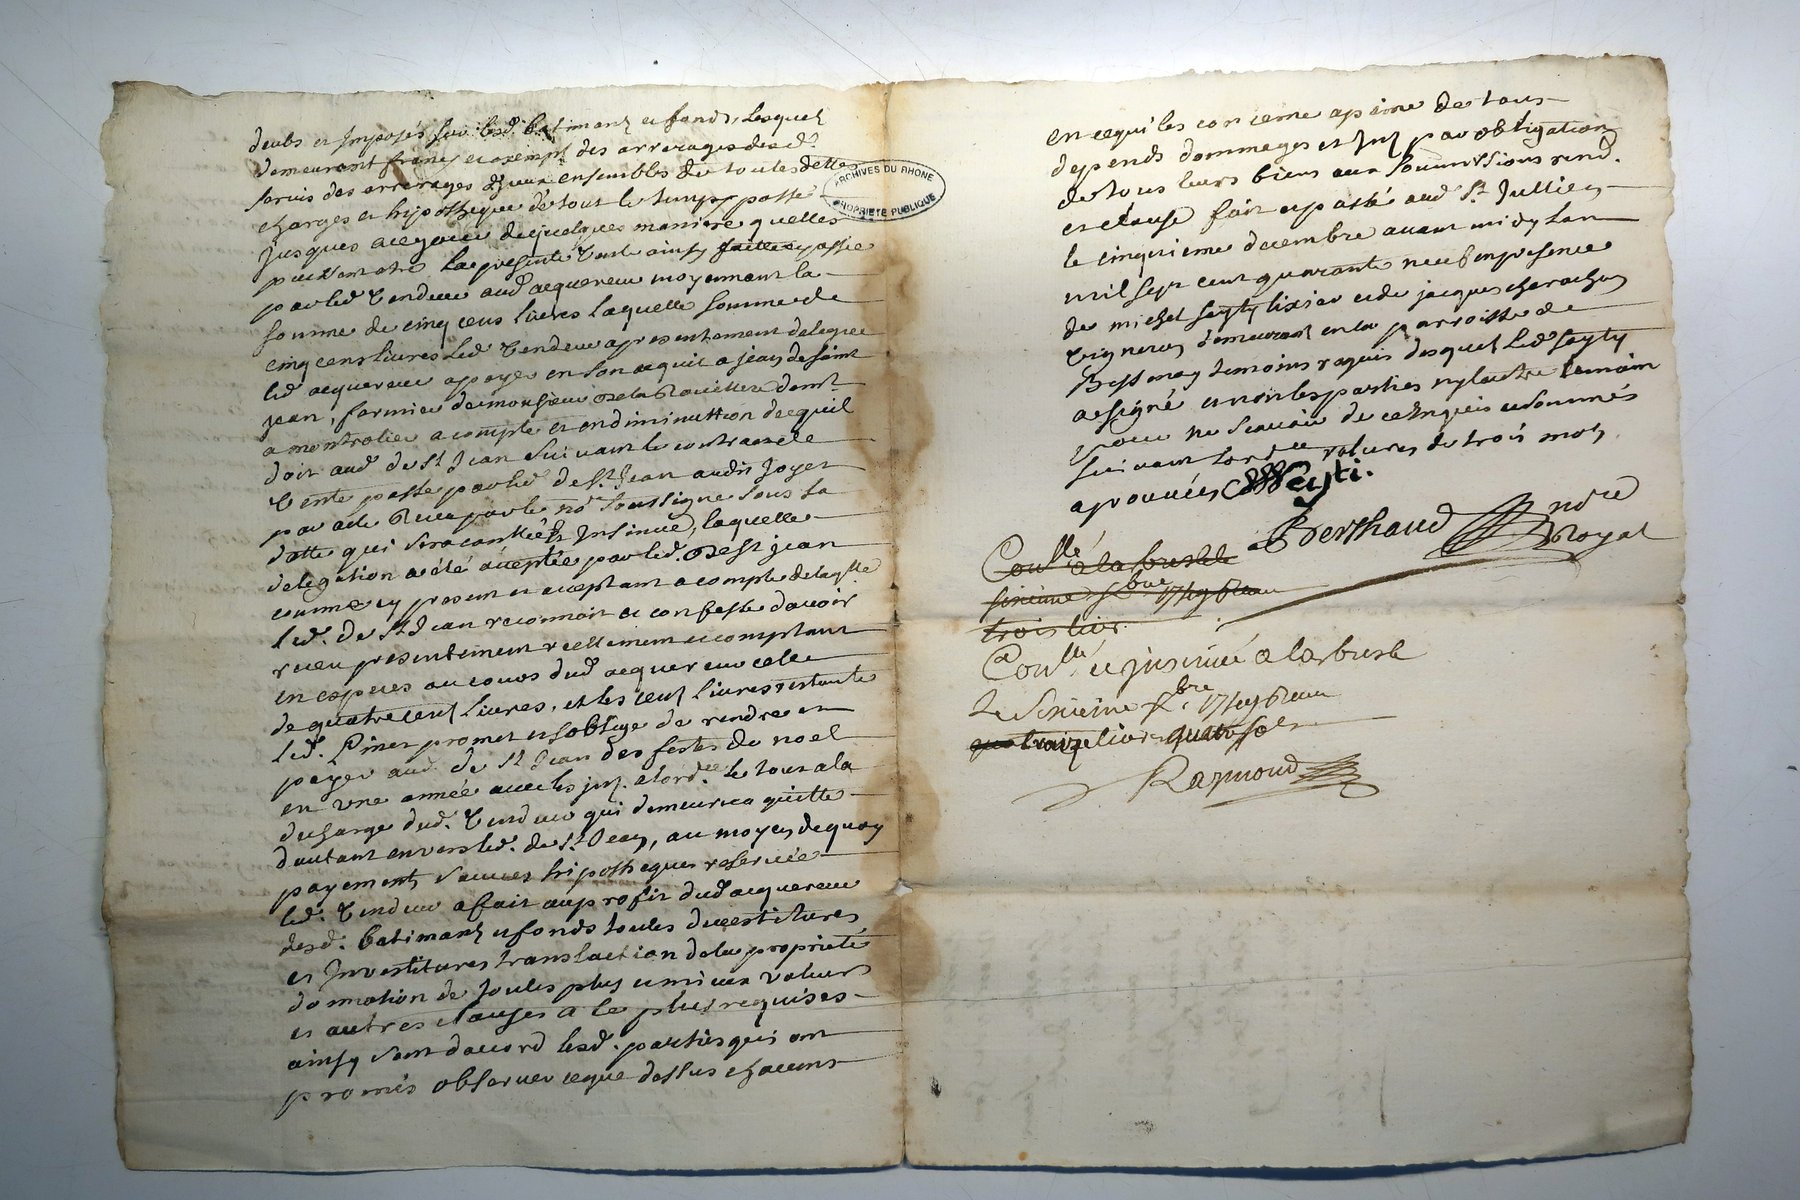 deubs et Imposés sur lesd. batimans et fonds, lesquels
demeurant francs et exempt des arrerages desd.
servis des arrerages d'jceux ensembles de toutes dettes
charges et hypotheque de tout le temps passé
jusques a ce jour de quelques maniere quelles
puissent etre La presente Vente ainsy faitte passée
par led. Vendeur aud. acquereur moyennant la
somme de cinq cens livres laquelle somme de
cinq cens livres led. Vendeur a presentement delegué
led. acquereur a payer en son acquit a jean de saint
jean, fermier de monsieur de la Rouillere demt.
a montrotier a compte et en diminuttion de ce quil
doit aud. de St. Jean suivant le contract de
Vente passé par led. de St. Jean audit Joyet
par acte Receu par le nore. soussigné sous sa
datte qui sera contllé et Insinué, laquelle
delegation a été acceptée par led. de St. jean
comme cy present et acceptant a compte de laqlle
led. de St. Jean reconnoit et confesse davoir
receu presentement reellement et comptant
en especes au cours dud. acquereur celle
de quatre cent livres, et les cent livres restante
led. promet et soblige de rendre et
payer aud. de St. Jean des festes de noel
en Une année avec les jnt. a lordre. le tout a la
decharge dud. Vendeur qui demeurera quitte
dautant envers led. de St. Jean, au moyen de quoy
payement sauves hipotheques reservée
led. Vendeur a fait au profit dud. acquereur
desd. batimans et fonds toutes devestitures
et Investitures translaction de la proprieté
donnation de toutes plus et mieux valeurs
et autres clauses a ce plus requises
ainsy sont daccord lesd. parties qui ont
promis observer ce que dessus chacuns
ARCHIVES DU RHONE
PROPRIETE PUBLIQUE
en ce qui les concerne a peine de tous
depends dommages et Int. par obligation
de tous leurs biens aux soumissions rend.
et clause fait et passé aud. St. Jullien
le cinquieme decembre avant midy lan
mil sept cent quarante neuf en presence
de michel seyty tixier et de jacques charachon
Vigneron demeurant en la parroisse de
Bessenay temoins requis desquels led. Seyty
a signé et non les parties ny lautre temoin
pour ne scavoir de ce enquis et sommés
suivant lordce ratures de trois mots
aprouvées Seyti.
Berthaud nore
Royal
Contllé a la bresle
sixieme xbre 1749 Receu
trois livr.
Contllé et jnsinué a larbresle
Le Sixieme xbre. 1749 Receu
treize livres quatre sols
Raymond